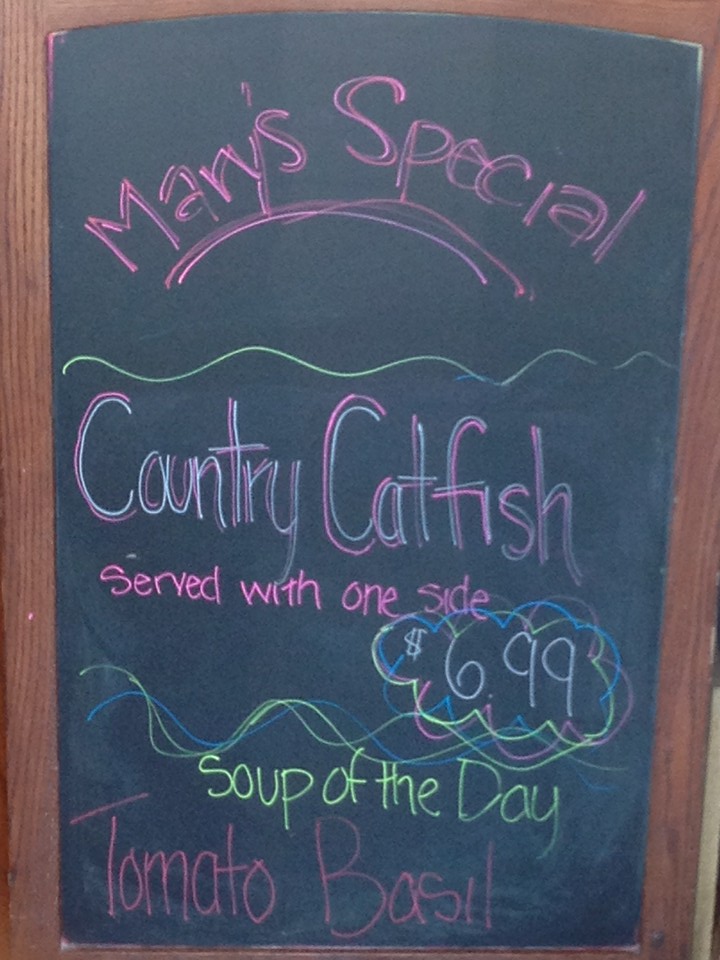 Mary's Special
Country Catfish
Served with one side
$6.99
Soup of the Day
Tomato Basil